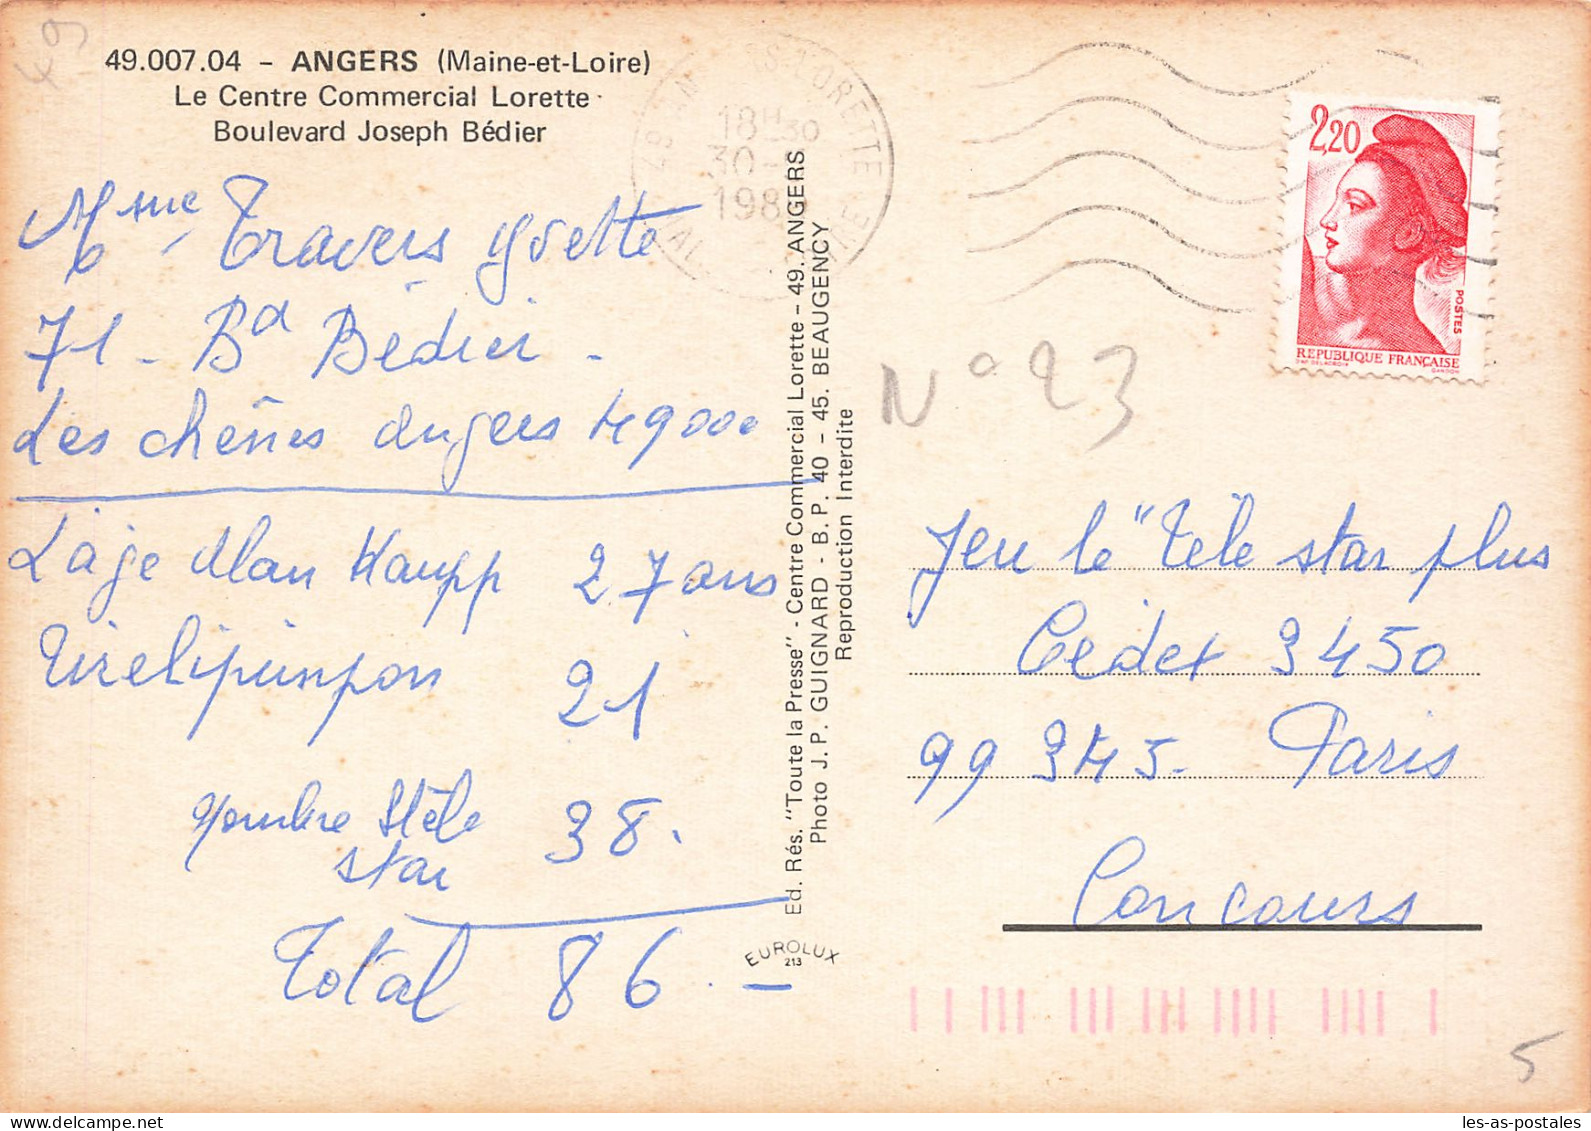 49
49.007.04 - ANGERS (Maine-et-Loire)
Le Centre Commercial Lorette
Boulevard Joseph Bédier
Mme Travers Yvette
71 - Bd Bédier -
Les chênes Angers 49000
L'age Alan Kaupp 27 ans
Tirelipimpon 21
Nombre télé 38.
star
Total 86.-
Ed. Rés. "Toute la Presse" - Centre Commercial Lorette - 49. ANGERS
Photo J. P. GUIGNARD - B. P. 40 - 45. BEAUGENCY
Reproduction Interdite
EUROLUX
213
LORETTE
18H30
30-
198
2,20
POSTES
REPUBLIQUE FRANÇAISE
DELACROIX
GANDON
N° 23
Jeu le "Télé star plus
Cedex 3450
99 345 - Paris
Concours
5
les-as-postales